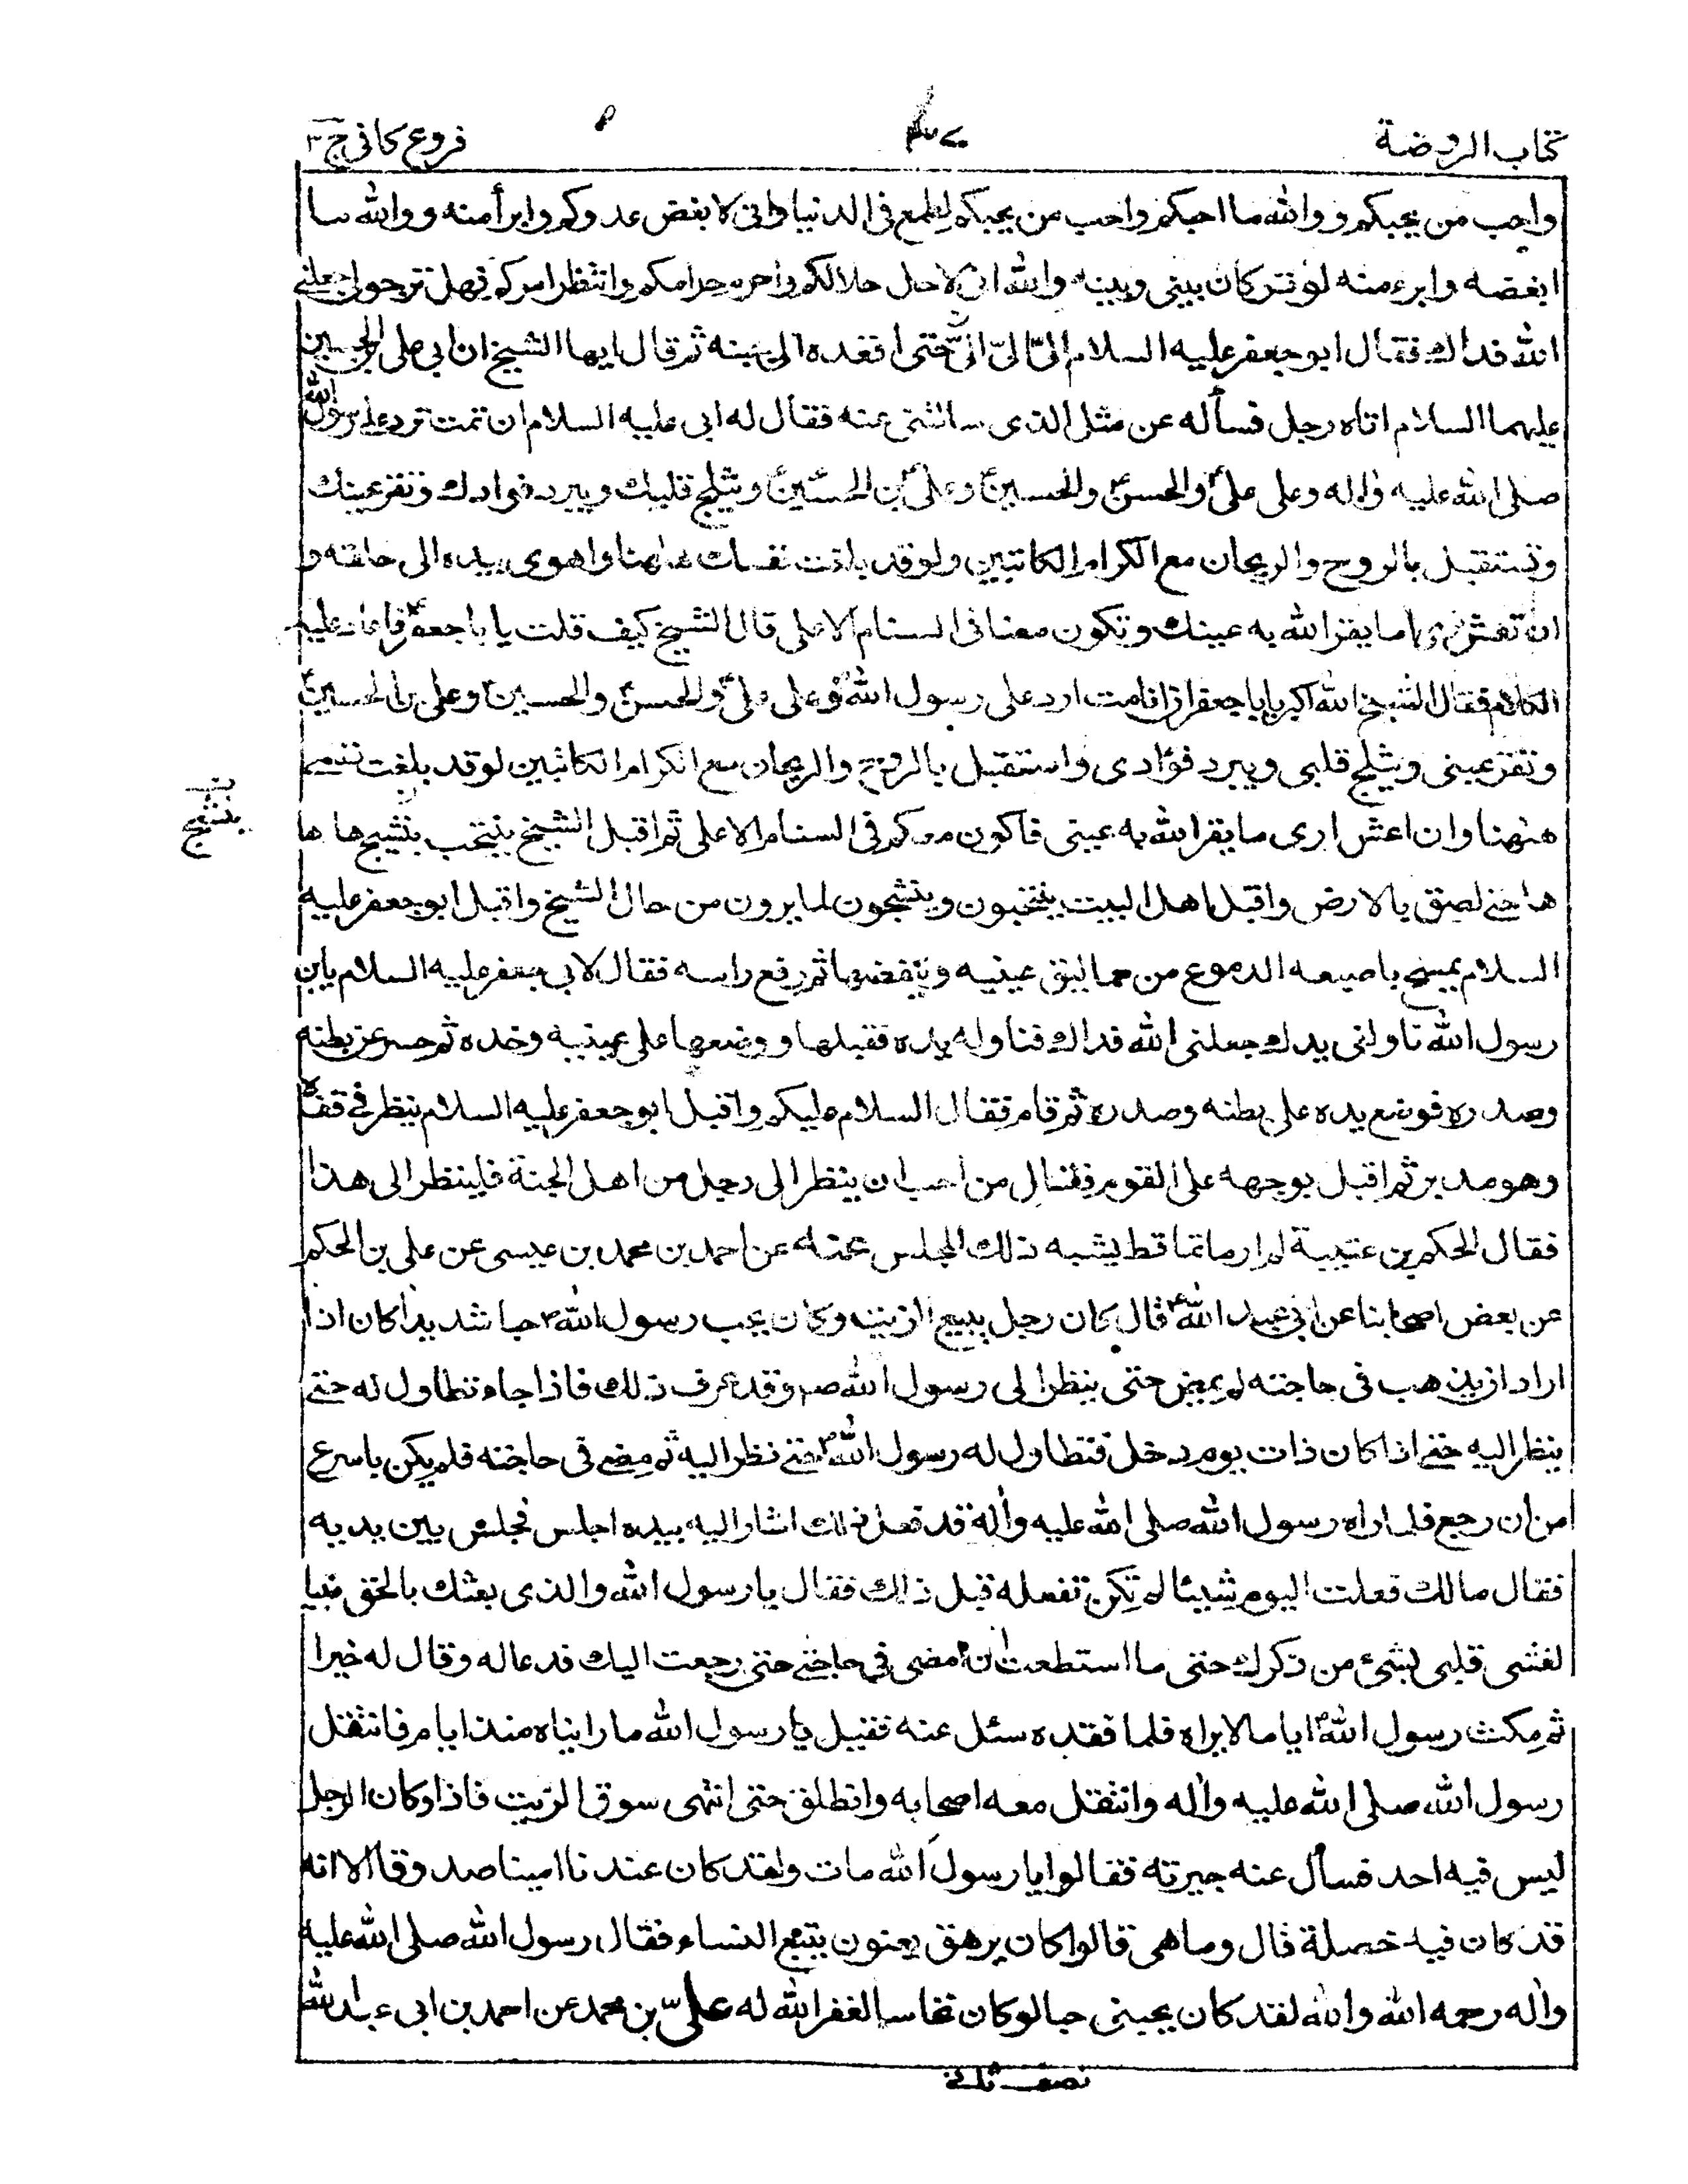 كتاب الروضة ٣٧ فروع كافى ج ٣
واحب من يحبكم ووالله ما احبكم واحب من يحبكم لطمع فى الدنيا وانى لا بغض عدوكم وابرأ منه ووالله ما
ابغضه وابرء منه لوتر كان بينى وبينه والله انى لاحل حلالكم واحرم حرامكم وانتظر امركم فهل ترجو لى جعلنى
الله فداك فقال ابو جعفر عليه السلام الىّ الىّ حتى اقعده الى جنبه ثم قال ايها الشيخ ان ابى على بن الحسين
عليهما السلام اتاه رجل فسأله عن مثل الذى سالتنى عنه فقال له ابى عليه السلام ان تمت ترد على رسول الله
صلى الله عليه واله وعلى علىؑ والحسنؑ والحسينؑ وعلىؑ بن الحسينؑ ويثلج قلبك ويبرد فوادك وتقر عينك
وتستقبل بالروح والريحان مع الكرام الكاتبين ولو قد بلغت نفسك هاهنا واهوى بيده الى حلقه و
ان تعش ترى ما يقر الله به عينك وتكون معنا فى السنام الاعلى قال الشيخ كيف قلت يا با جعفرؑ فاعاد عليه
الكلام فقال الشيخ الله اكبر يا با جعفر ان انا مت ارد على رسول اللهؐ وعلى علىؑ والحسنؑ والحسينؑ وعلى بن الحسينؑ
وتقر عينى ويثلج قلبى ويبرد فؤادى واستقبل بالروح والريحان مع الكرام الكاتبين لو قد بلغت نفسى
ههنا وان اعش ارى ما يقر الله به عينى فاكون معكم فى السنام الاعلى ثم اقبل الشيخ ينتحب ينشج ها ها
ها حتى لصق بالارض واقبل اهل البيت ينتحبون وينشجون لما يرون من حال الشيخ واقبل ابو جعفر عليه
السلام يمسح باصبعه الدموع من حماليق عينيه وينفضها ثم رفع راسه فقال لابى جعفر عليه السلام يابن
رسول الله ناولنى يدك جعلنى الله فداك فناوله يده فقبلها ووضعها على عينيه وخده ثم حسر عن بطنه
وصدره فوضع يده على بطنه وصدره ثم قام فقال السلام عليكم واقبل ابو جعفر عليه السلام ينظر فى قفاه
وهو مدبر ثم اقبل بوجهه على القوم فقال من احب ان ينظر الى رجل من اهل الجنة فلينظر الى هذا
فقال الحكم بن عتيبة لم ار ماتما قط يشبه ذلك المجلس عنه عن احمد بن محمد بن عيسى عن على بن الحكم
عن بعض اصحابنا عن ابى عبد اللهؑ قال كان رجل يبيع الزيت وكان يحب رسول اللهؐ حبا شديدا كان اذا
اراد ان يذهب فى حاجته لم يمض حتى ينظر الى رسول الله صم وقد عرف ذلك فاذا جاء تطاول له حتى
ينظر اليه حتى اذا كان ذات يوم دخل فتطاول له رسول اللهؐ حتى نظر اليه ثم مضى فى حاجته فلم يكن باسرع
من ان رجع فلما راه رسول الله صلى الله عليه واله قد فعل ذلك اشار اليه بيده اجلس فجلس بين يديه
فقال مالك فعلت اليوم شيئا لم تكن تفعله قبل ذلك فقال يا رسول الله والذى بعثك بالحق نبيا
لغشى قلبى بشئ من ذكرك حتى ما استطعت ان امضى فى حاجتى حتى رجعت اليك فدعا له وقال له خيرا
ثم مكث رسول اللهؐ اياما لا يراه فلما فقده سئل عنه فقيل يا رسول الله ما رايناه منذ ايام فانتقل
رسول الله صلى الله عليه واله وانتقل معه اصحابه وانطلق حتى انتهى سوق الزيت فاذا دكان الرجل
ليس فيه احد فسأل عنه جيرته فقالوا يا رسول الله مات ولقد كان عندنا امينا صدوقا الا انه
قد كان فيه خصلة قال وما هى قالوا كان يرهق يعنون يتبع النساء فقال رسول الله صلى الله عليه
واله رحمه الله والله لقد كان يحبنى حبا لو كان نخاسا لغفر الله له علىّ بن محمد عن احمد بن ابى عبد الله
ينشج